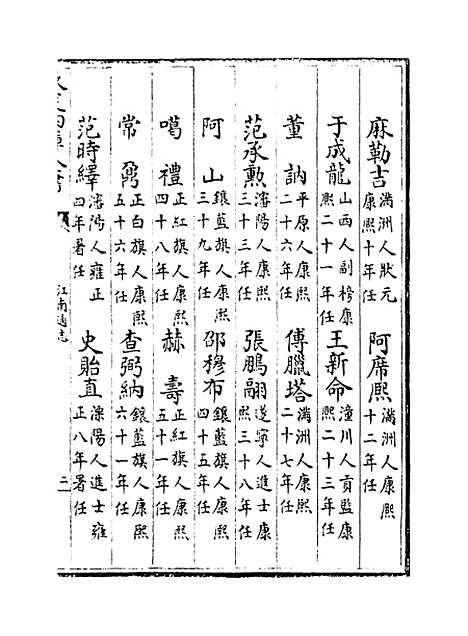 麻勒吉 滿洲人狀元康熙十年任 阿席熙 滿洲人康熙十二年任
于成龍 山西人副榜康熙二十一年任 王新命 潼川人貢監康熙二十三年任
董訥 平原人康熙二十六年任 傅臘塔 滿洲人康熙二十七年任
范承勲 瀋陽人康熙三十三年任 張鵬翮 遂寧人進士康熙三十八年任
阿山 鑲藍旗人康熙三十九年任 邵穆布 鑲藍旗人康熙四十五年任
噶禮 正紅旗人康熙四十八年任 赫壽 正紅旗人康熙五十一年任
常鼐 正白旗人康熙五十六年任 查弼納 鑲藍旗人康熙六十一年任
范時繹 瀋陽人雍正四年署任 史貽直 溧陽人進士雍正八年署任
江南通志 二